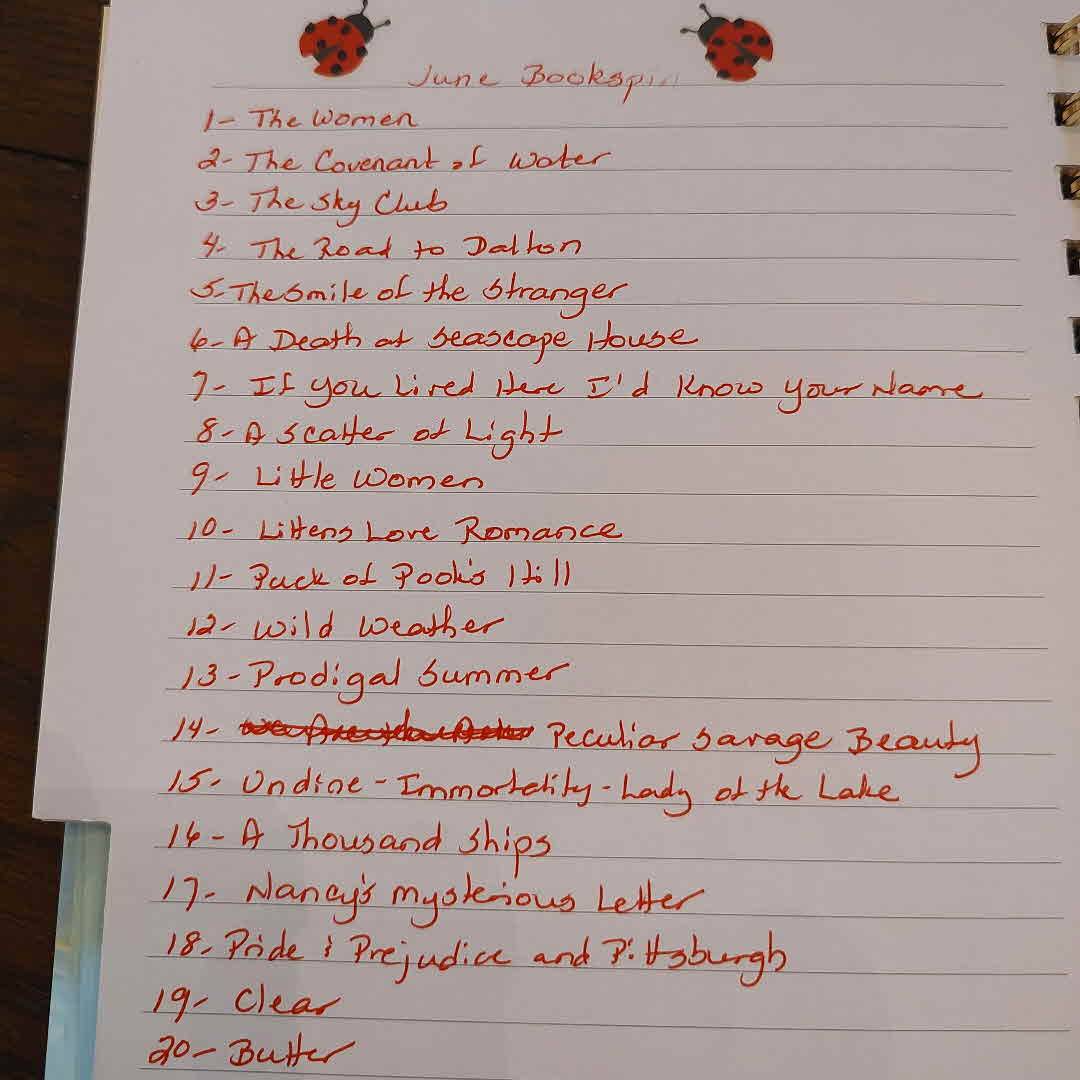 June Bookspin
1- The Women
2- The Covenant of Water
3- The Sky Club
4- The Road to Dalton
5- The Smile of the Stranger
6- A Death at Seascape House
7- If you Lived Here I'd Know Your Name
8- A Scatter of Light
9- Little Women
10- Littens Love Romance
11- Puck of Pook's Hill
12- Wild Weather
13- Prodigal Summer
14- Peculiar Savage Beauty
15- Undine - Immortality - Lady of the Lake
16- A Thousand Ships
17- Nancy's Mysterious Letter
18- Pride & Prejudice and Pittsburgh
19- Clear
20- Butter